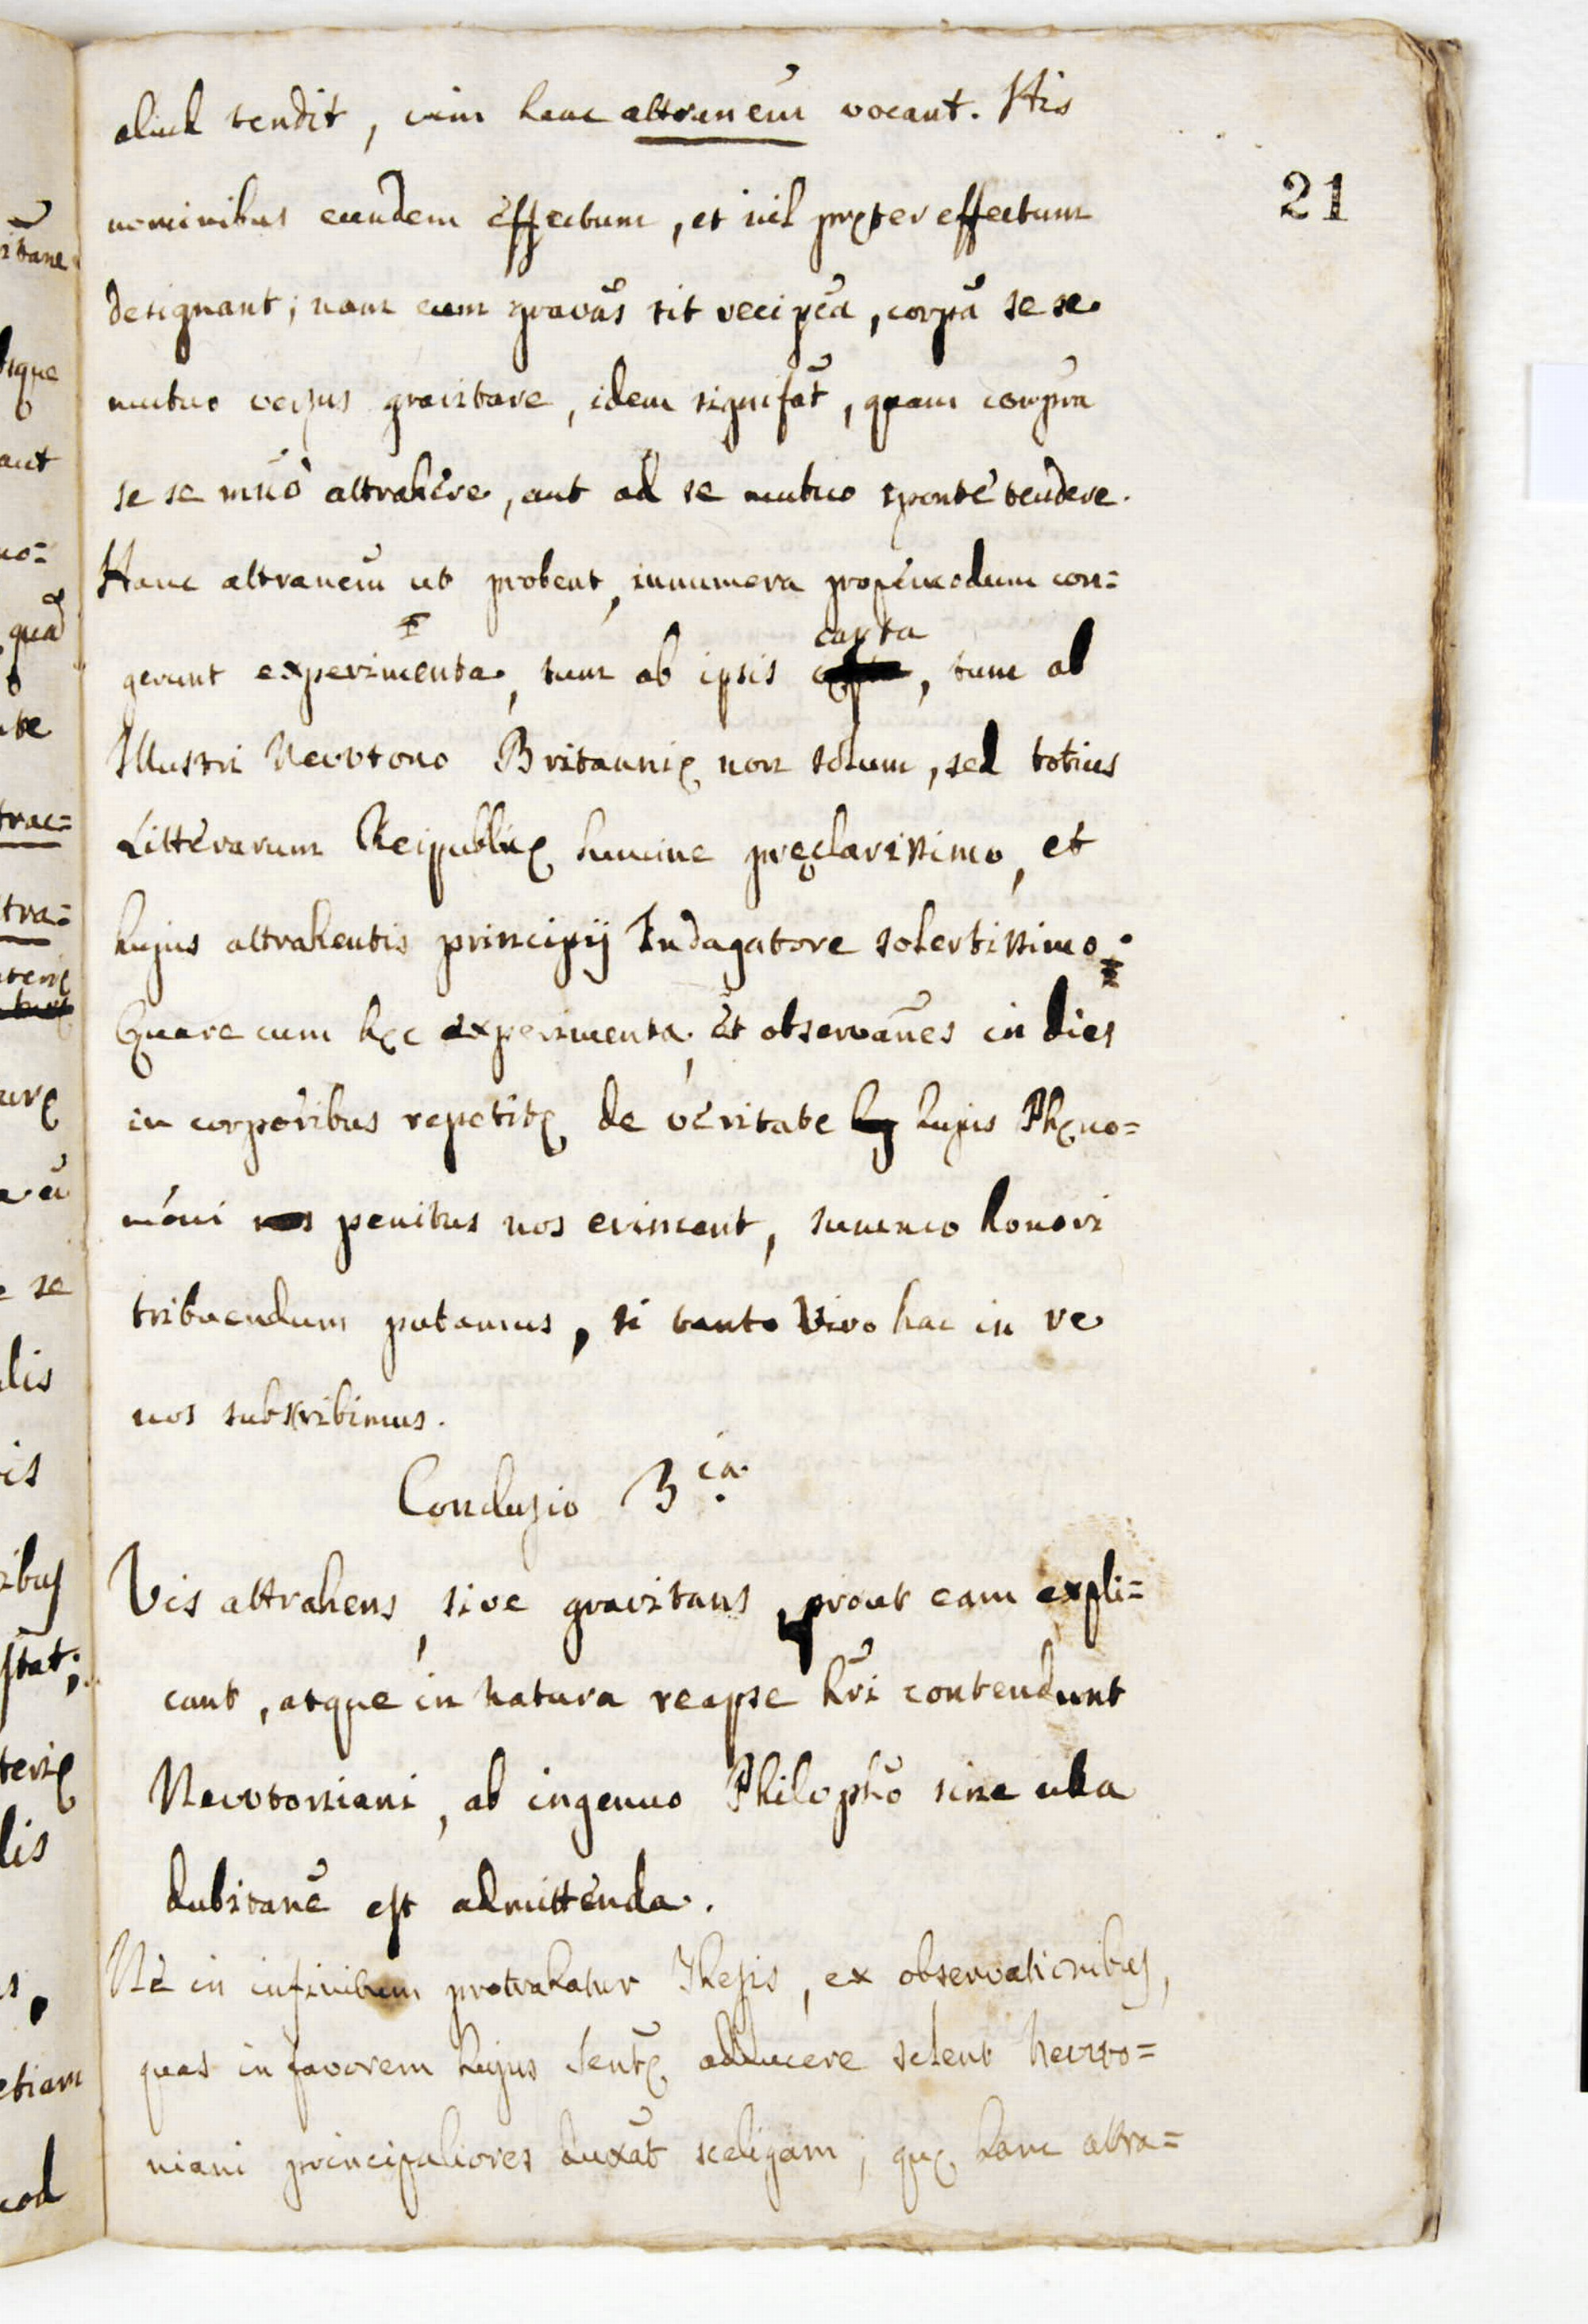 aliud tendit, vim hanc attranem̃ vocant. His
21
nominibus eundem effectum, et nil pręter effectum
designant; nam cum gravãs sit recip̃ca, corpã se se
mutuo versus gravitare, idem signifãt, quam corpora
se se mũo attrahere, aut ad se mutuo sponte tendere.
Hanc attranem̃ ut probent, innumera propemodum con=
gerunt experimenta, tum ab ipsis capta, tum ab
Illustri Nevvtono Britannię non solum, sed totius
Litterarum Reipublicę lumine pręclarissimo, et
hujus attrahentis principij Indagatore solertissimo:
Quare cum hęc experimenta, et observanẽs in dies
in corporibus repetitę de veritate hujus Phęno=
meni penitus nos evincant, summo honori
tribuendum putamus, si tanto Viro hac in re
nos subscribimus.
Conclusio 3.ia
Vis attrahens, sive gravitans, prout eam expli=
cant, atque in natura reapse hr̃i contendunt
Nevvtoniani, ab ingenuo Philopho͂ sine ulla
dubitanẽ est admittenda.
Ne in infinitum protrahatur Thesis, ex observationibus,
quas in favorem hujus Sent̃ę adducere solent Nevvto=
niani principaliores duxat̃ seligam; quę hanc attra=
ritane
sque
aut
no=
qua
te
trac=
tra=
terię
urę
se
lis
is
ribus
stat;
terię
lis
s,
etiam
uod